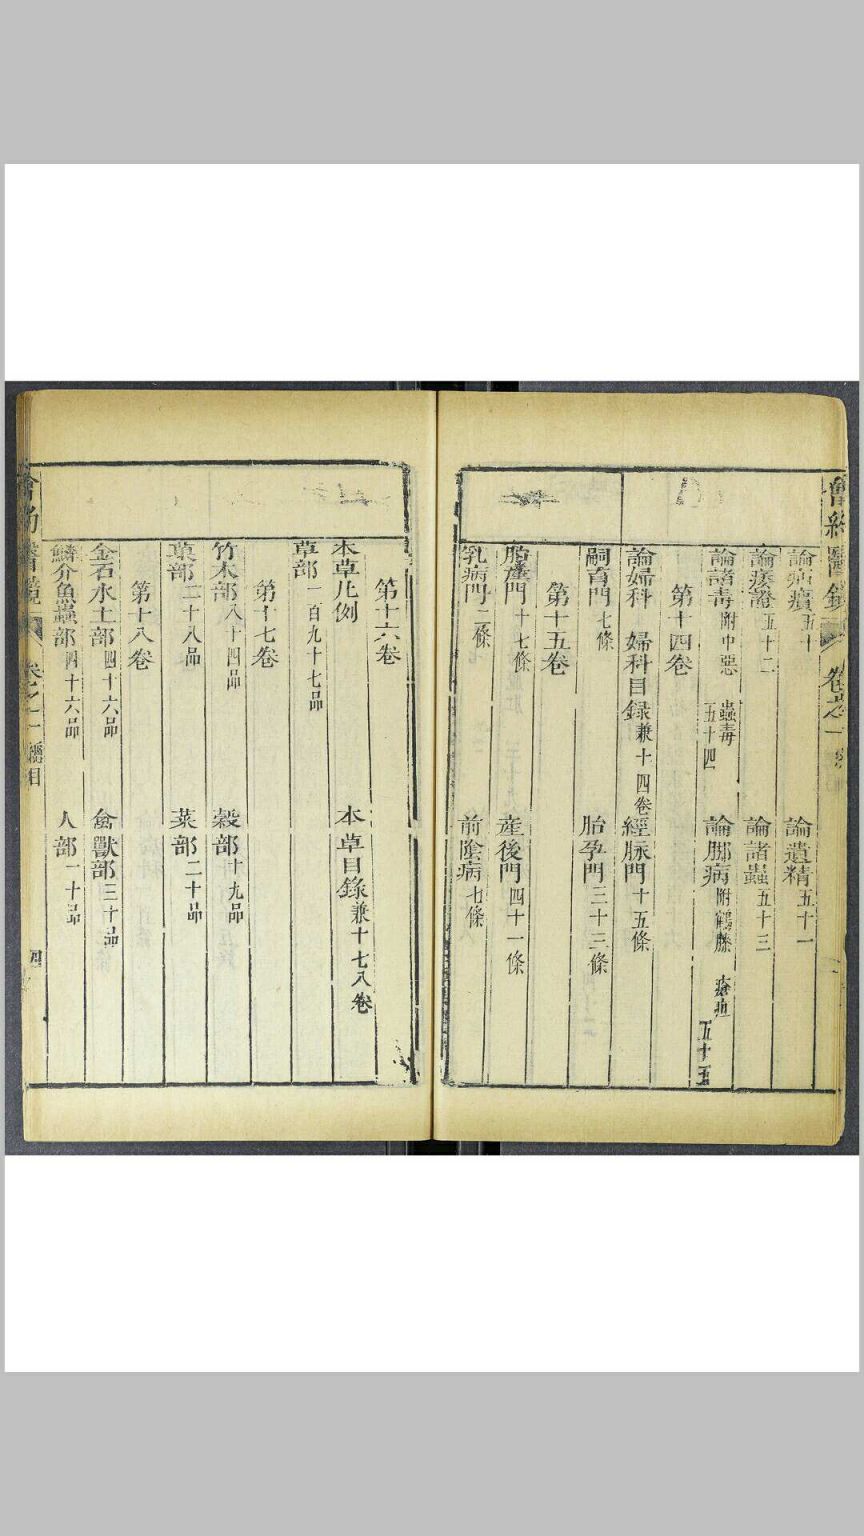 論㿗疝五十 論遺精五十一
論痿證五十二 論諸蟲五十三
論諸毒附中惡 蟲毒五十四 論腳病附鶴膝 瘡疽五十五
第十四卷
論婦科 婦科目録兼十四卷 經脉門十五條
嗣育門七條 胎孕門三十三條
第十五卷
胎產門十七條 産後門四十一條
乳病門二條 前陰病七條
第十六卷
本草凡例 本草目錄兼十七八卷
草部一百九十七品
第十七卷
竹木部八十四品 穀部十九品
菓部二十八品 菜部二十品
第十八卷
金石水土部四十六品 禽獸部三十品
鱗介魚蟲部四十六品 人部一十品
四